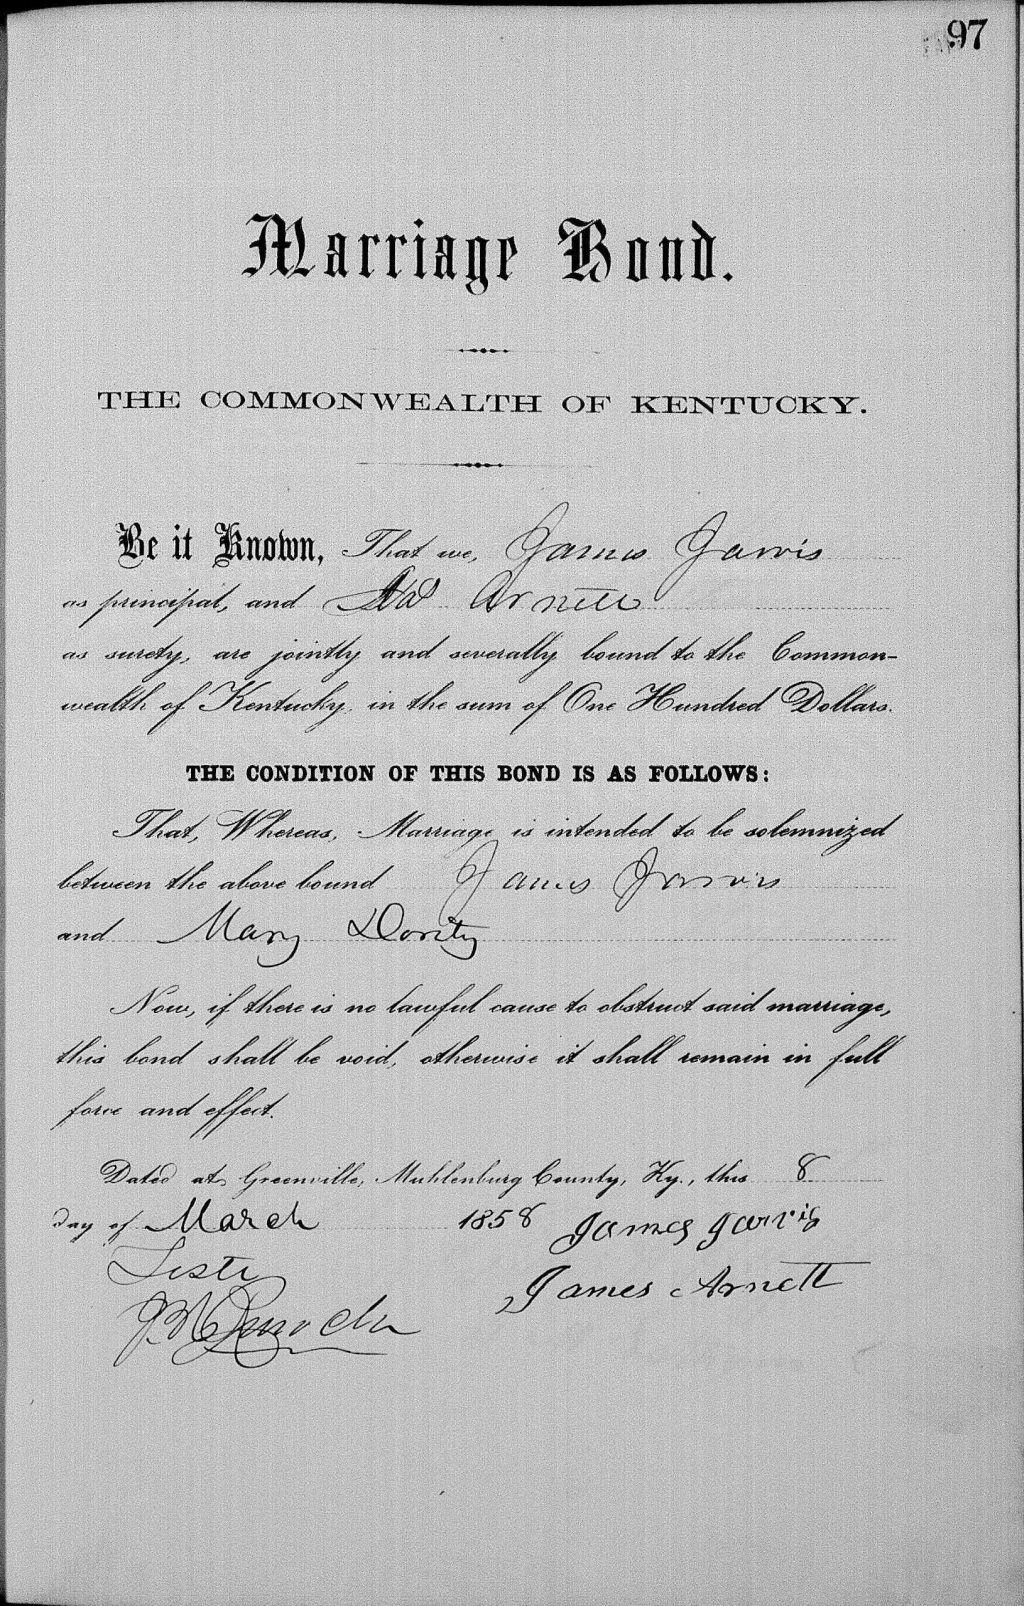 97
Marriage Bond.
THE COMMONWEALTH OF KENTUCKY.
Be it Known, That we, James Jarvis
as principal, and Arnett
as surety, are jointly and severally bound to the Common-
wealth of Kentucky, in the sum of One Hundred Dollars.
THE CONDITION OF THIS BOND IS AS FOLLOWS:
That, Whereas, Marriage is intended to be solemnized
between the above bound James Jarvis
and Mary Dority
Now, if there is no lawful cause to obstruct said marriage,
this bond shall be void, otherwise it shall remain in full
force and effect.
Dated at Greenville, Muhlenburg County, Ky., this 8
day of March 1858 James Jarvis
Teste James Arnett